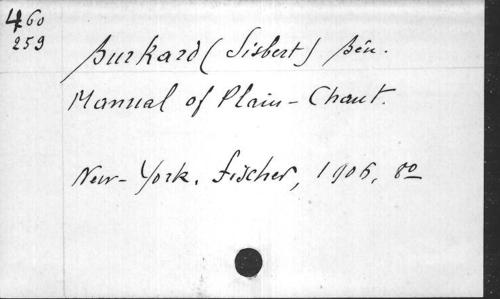 460
259
Burkard (Sisbert) Bén.
Manual of Plain-Chant.
New-York, Fischer, 1906, 8º